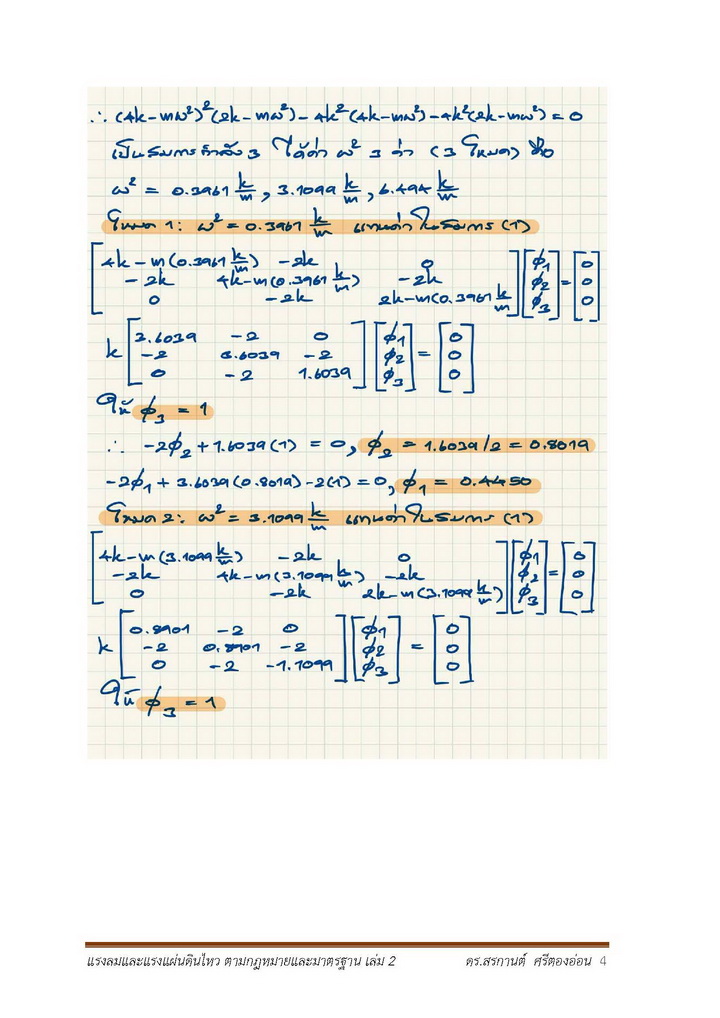 ∴ (4k-mω²)²(2k-mω²)-4k²(4k-mω²)-4k²(2k-mω²) = 0
เป็นสมการกำลัง 3 ได้ค่า ω² 3 ค่า (3 โหมด) คือ
ω² = 0.3961 k/m, 3.1099 k/m, 6.494 k/m
โหมด 1: ω² = 0.3961 k/m แทนค่าในสมการ (1)
[4k-m(0.3961 k/m) -2k 0] [φ1] [0]
[-2k 4k-m(0.3961 k/m) -2k] [φ2] = [0]
[0 -2k 2k-m(0.3961 k/m)] [φ3] [0]
[3.6039 -2 0] [φ1] [0]
k [-2 3.6039 -2] [φ2] = [0]
[0 -2 1.6039] [φ3] [0]
ให้ φ3 = 1
∴ -2φ2 + 1.6039(1) = 0, φ2 = 1.6039/2 = 0.8019
-2φ1 + 3.6039(0.8019)-2(1) = 0, φ1 = 0.4450
โหมด 2: ω² = 3.1099 k/m แทนค่าในสมการ (1)
[4k-m(3.1099 k/m) -2k 0] [φ1] [0]
[-2k 4k-m(3.1099 k/m) -2k] [φ2] = [0]
[0 -2k 2k-m(3.1099 k/m)] [φ3] [0]
[0.8901 -2 0] [φ1] [0]
k [-2 0.8901 -2] [φ2] = [0]
[0 -2 -1.1099] [φ3] [0]
ให้ φ3 = 1
แรงลมและแรงแผ่นดินไหว ตามกฎหมายและมาตรฐาน เล่ม 2 ดร.สรกานต์ ศรีตองอ่อน 4